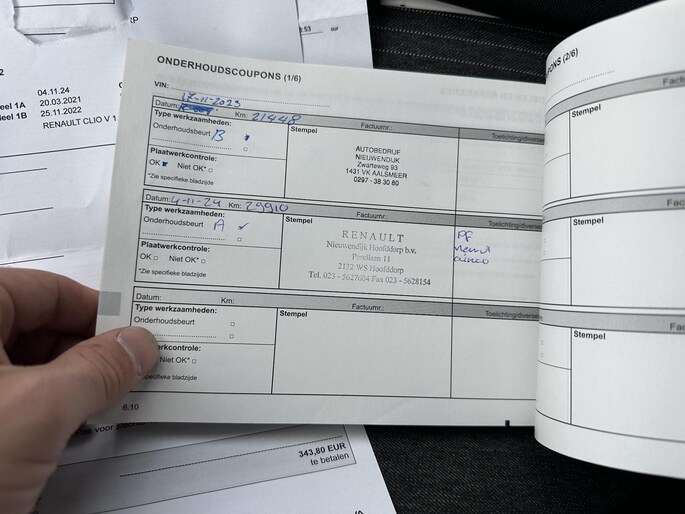 04.11.24
eel 1A 20.03.2021
eel 1B 25.11.2022
RENAULT CLIO V 1
:53 uur
ONDERHOUDSCOUPONS (1/6)
VIN:
17-11-2023
Datum: Km: 21448
Type werkzaamheden:
Onderhoudsbeurt B
Plaatwerkcontrole:
OK Niet OK*
*Zie specifieke bladzijde
Stempel Factuurnr.:
AUTOBEDRIJF
NIEUWENDIJK
Zwarteweg 93
1431 VK AALSMEER
0297 - 38 30 80
Datum: 4-11-24 Km: 29910
Type werkzaamheden:
Onderhoudsbeurt A ✓
Plaatwerkcontrole:
OK Niet OK*
*Zie specifieke bladzijde
Stempel Factuurnr.:
RENAULT
Nieuwendijk Hoofddorp b.v.
Pavellaan 11
2132 WS Hoofddorp
Tel. 023 - 5627604 Fax 023 - 5628154
PF
Datum: Km:
Type werkzaamheden:
Onderhoudsbeurt
rkcontrole:
Niet OK*
specifieke bladzijde
Stempel Factuurnr.:
Toelichting/diverse
6.10
ONS (2/6)
Stempel
Stempel
Stempel
343,80 EUR
te betalen